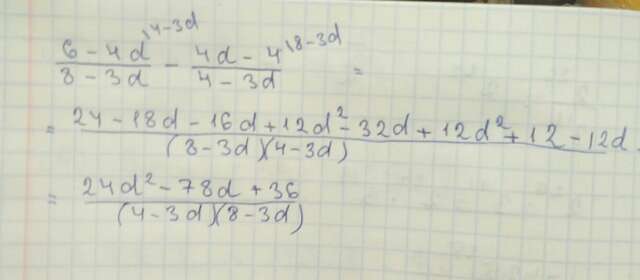 (6 - 4d)/(8 - 3d) \4-3d - (4d - 4)/(4 - 3d) \8-3d =
= (24 - 18d - 16d + 12d² - 32d + 12d² + 12 - 12d)/((8 - 3d)(4 - 3d)) =
= (24d² - 78d + 36)/((4 - 3d)(8 - 3d))